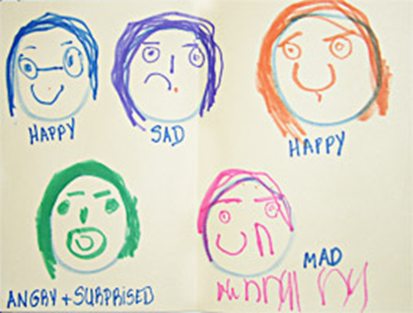 HAPPY
SAD
HAPPY
ANGRY + SURPRISED
MAD